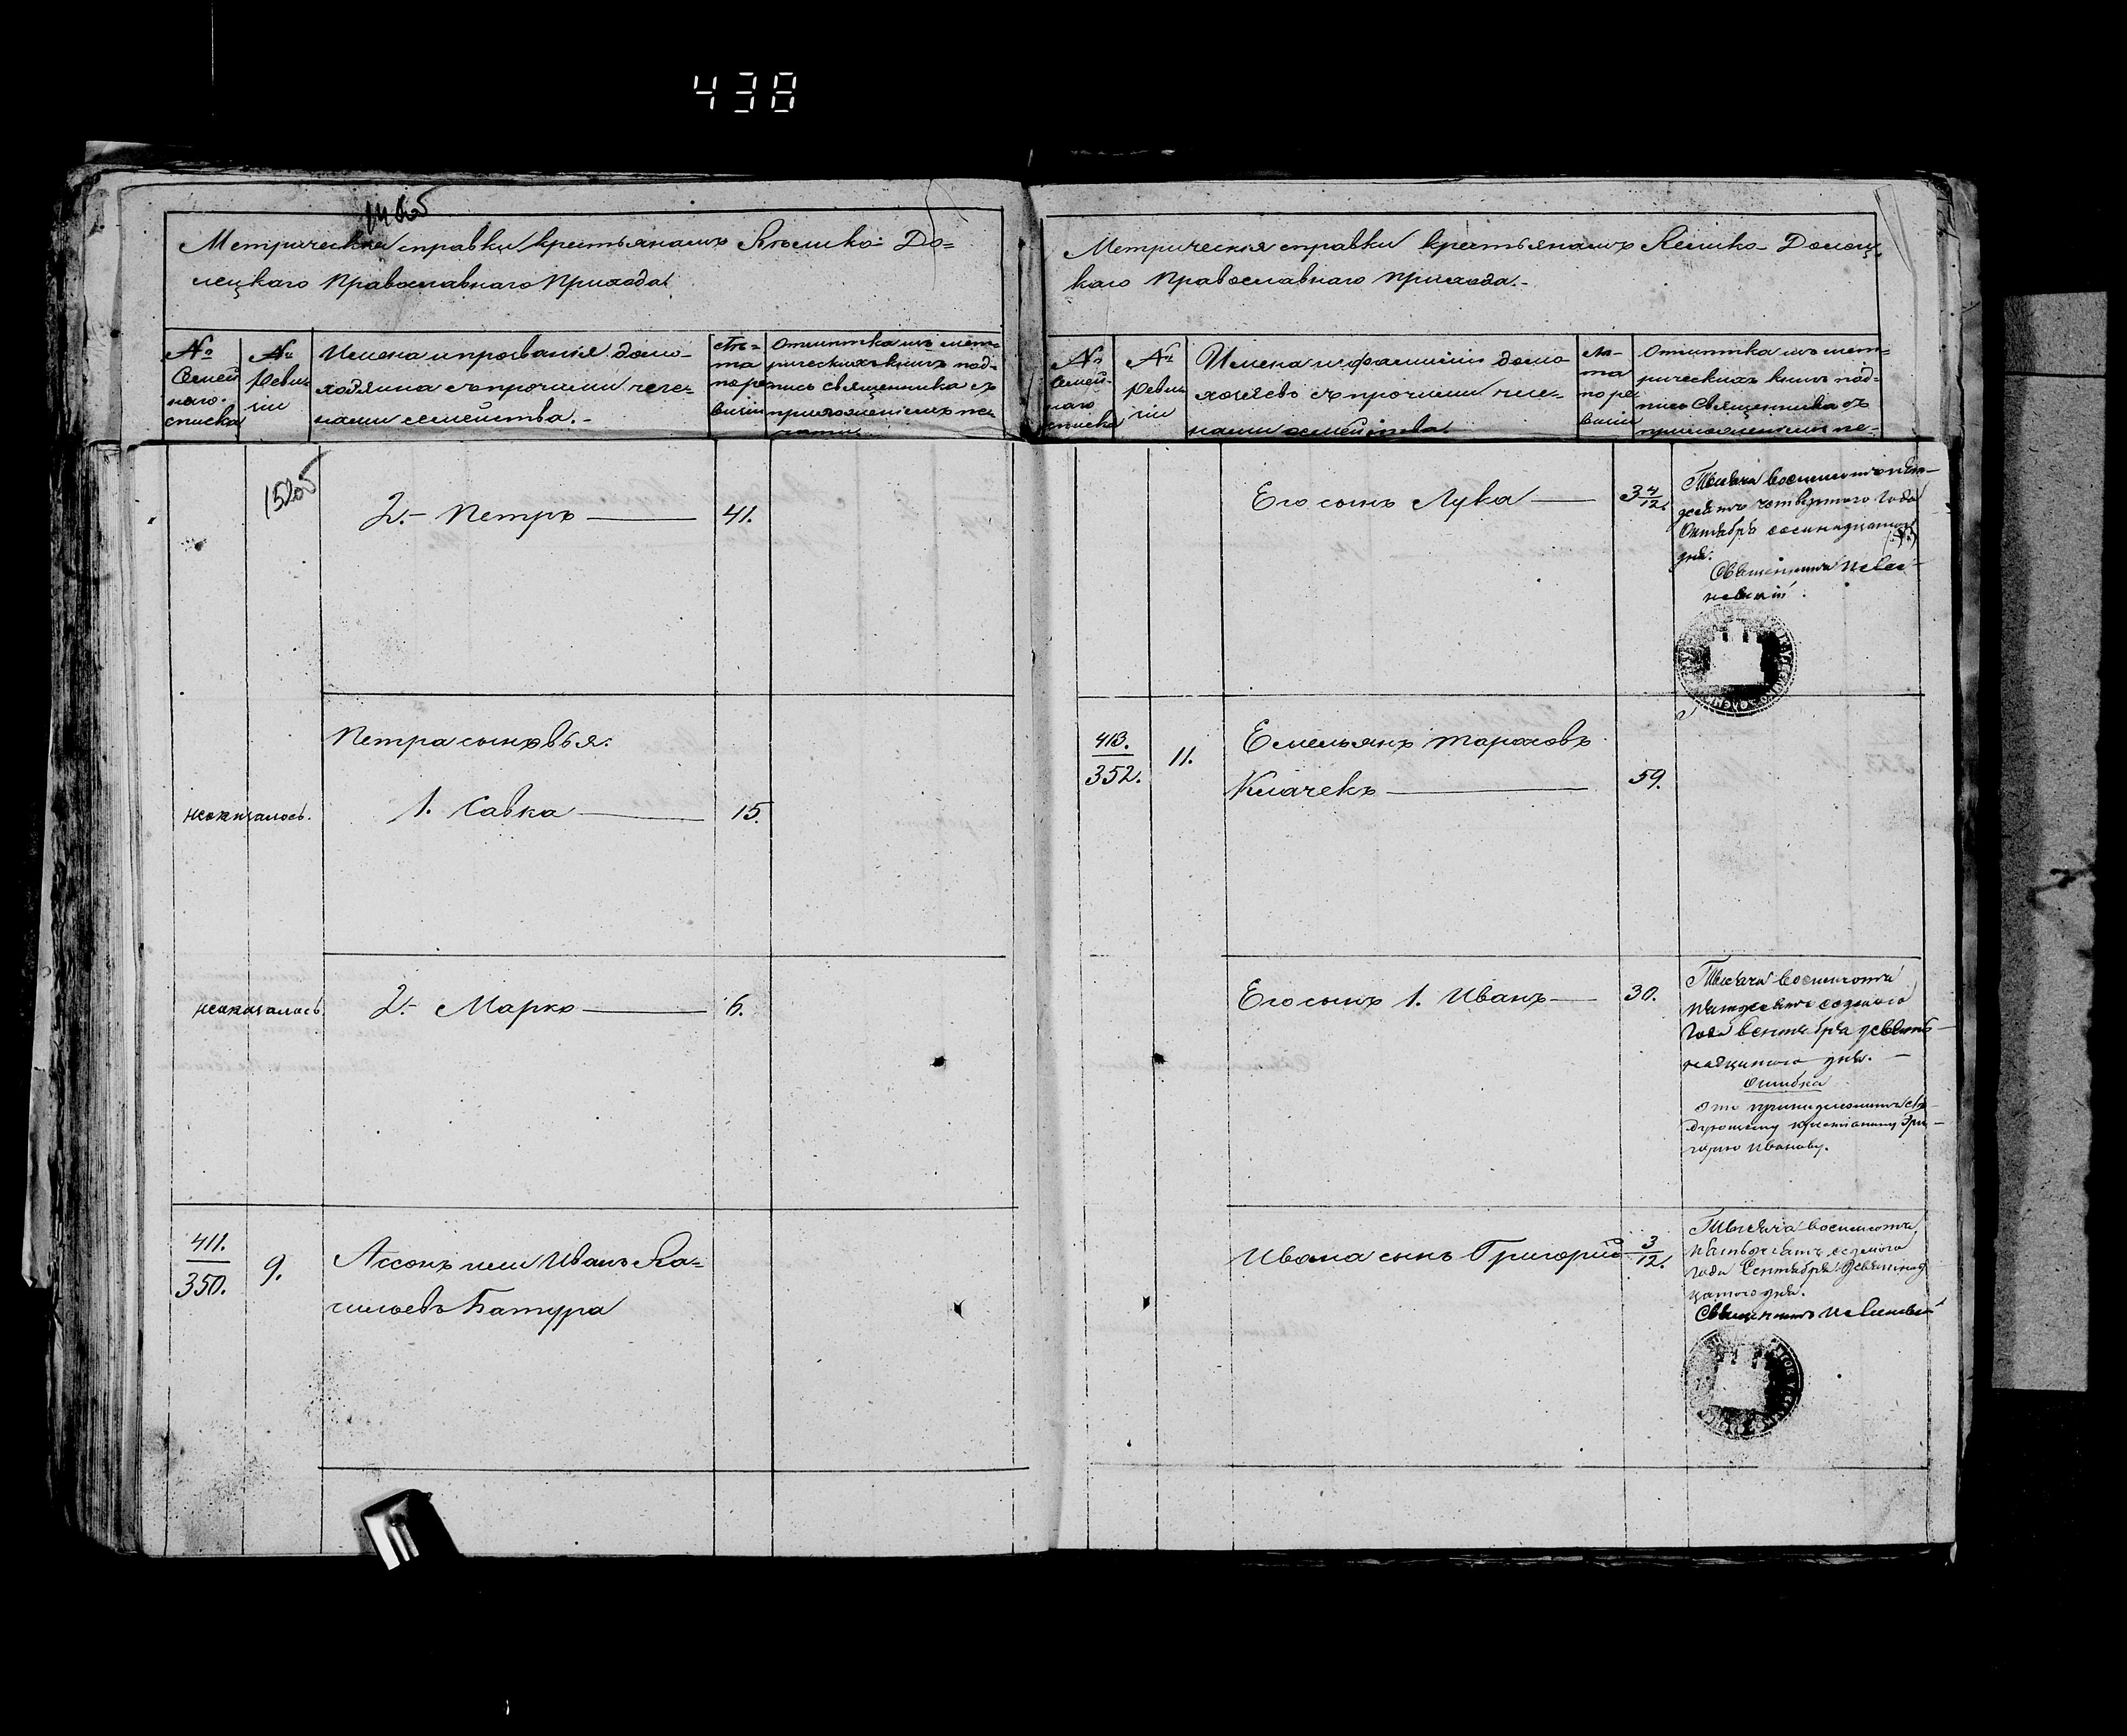 438
Метрическія справки крестьянамъ Велико-До=
лецкаго Православнаго Прихода
№
Семей
наго
списка
№
Ревиз
іи
Имена и прозванія домо-
хозяина съ прочими чле-
нами семейства.-
Лѣ=
та
по ре
визіи
Отмѣтка изъ мет-
рическихъ книгъ под-
пись священника съ
приложеніемъ пе-
чати.
2.- Петръ — 41.
Петра сыновья:
неоказалось. 1. Савка — 15.
неоказалось 2.- Марко — 6.
411.
350. 9. Ассонъ или Иванъ Ва=
сильевъ Батура
Метрическія справки крестьянамъ Велико-Долец
каго Православнаго Прихода.-
№
Семей-
наго
списка
№
Ревиз
іи
Имена и фамиліи домо
хозяевъ съ прочими чле-
нами семейства.
Лѣ-
та
по ре
визіи
Отмѣтка изъ мет=
рическихъ книгъ под-
пись Священника съ
приложеніемъ пе-
Его сынъ Лука — 3 4/12.
Тысяча восемьсотъ пять-
десятъ четвертаго года
Октября восемнадцатаго
дня.
Священникъ
413.
352. 11. Емельянъ Тарасовъ
Клачекъ — 59.
Его сынъ 1. Иванъ — 30.
Тысяча восемьсотъ
пятьдесятъ седьмаго
года Сентября девят-
надцатаго дня. -
Ошибка
Это принадлежитъ слѣ-
дующему крестьянину Гри-
горію Иванову.
Ивана сынъ Григорій 3/12.
Тысяча восемьсотъ
пятьдесятъ седьмаго
года Сентября девятнад
цатаго дня.
Священникъ